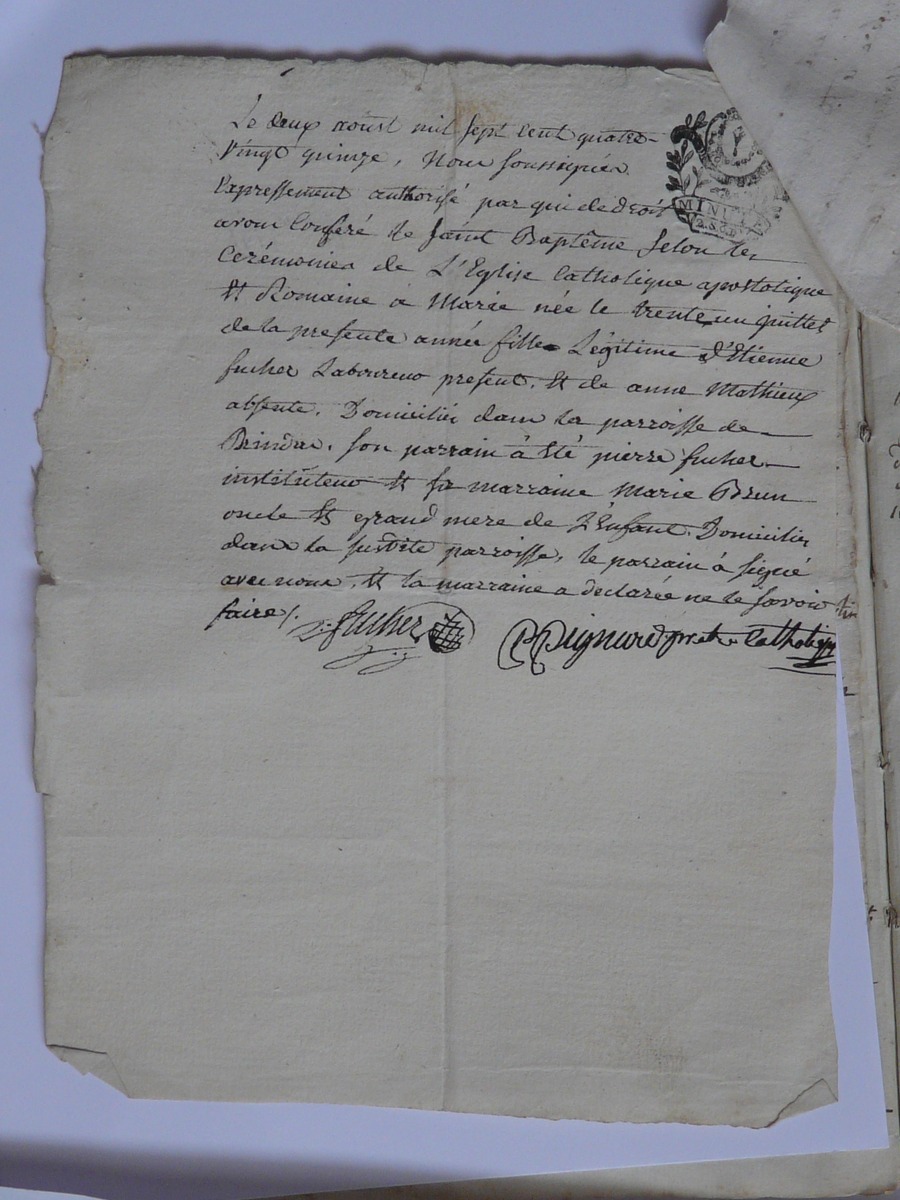 Le deux aoust mil sept cent quatre
Vingt quinze, Nous soussignés
Expressement authorisé par qui de droit
avons Conferé le saint Baptême selon les
Cerémonies de L'Eglise Catholique apostolique
Et Romaine à Marie née le trente un juillet
de la presente année fille Légitime d'Etienne
fucher Laboureur present, Et de anne Mathieux
absente, Domiciliés dans la parroisse de
son parrain à Eté pierre fucher
instituteur Et sa marraine Marie Brun
oncle Et grand mere de L'Enfant Domiciliés
dans la susdite parroisse, le parrain à signé
avec nous, Et la marraine a declarée ne le savoir
faire /.
fucher
Pignard pretre Catholique
MINUTE